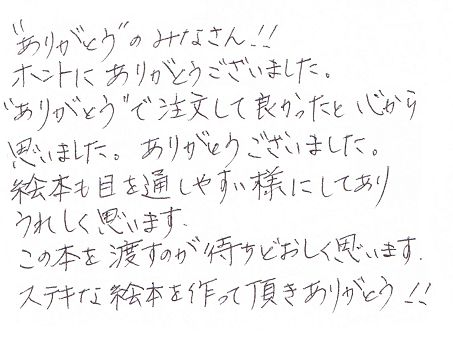 "ありがとう"のみなさん!!
ホントにありがとうございました。
"ありがとう"で注文して良かったと心から
思いました。ありがとうございました。
絵本も目を通しやすい様にしてあり
うれしく思います.
この本を渡すのが待ちどおしく思います.
ステキな絵本を作って頂きありがとう!!